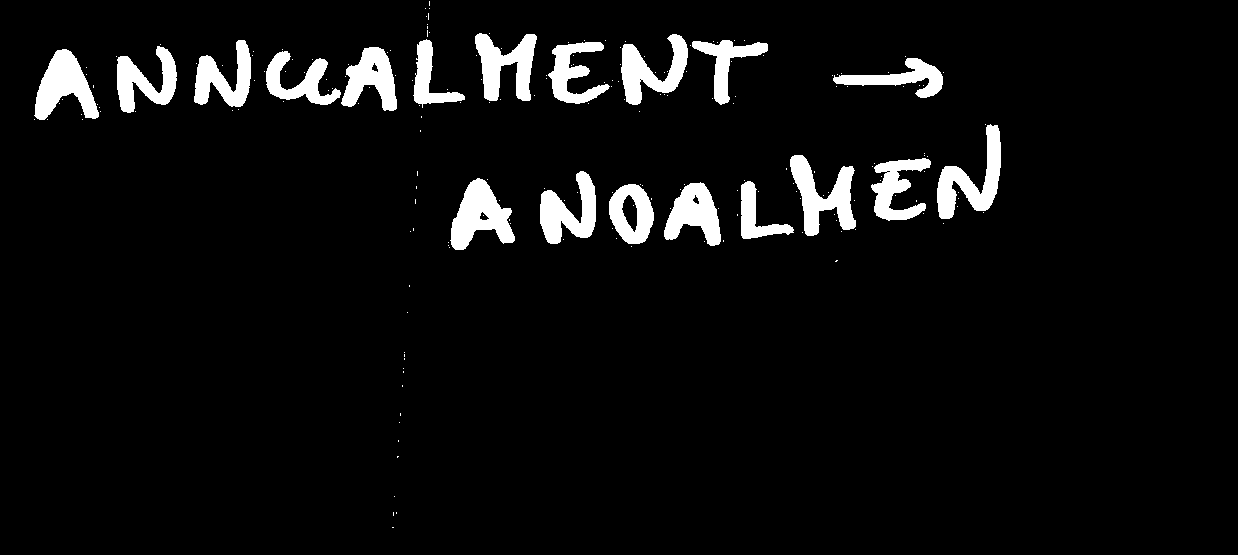 ANNUALMENT →
ANOALMEN